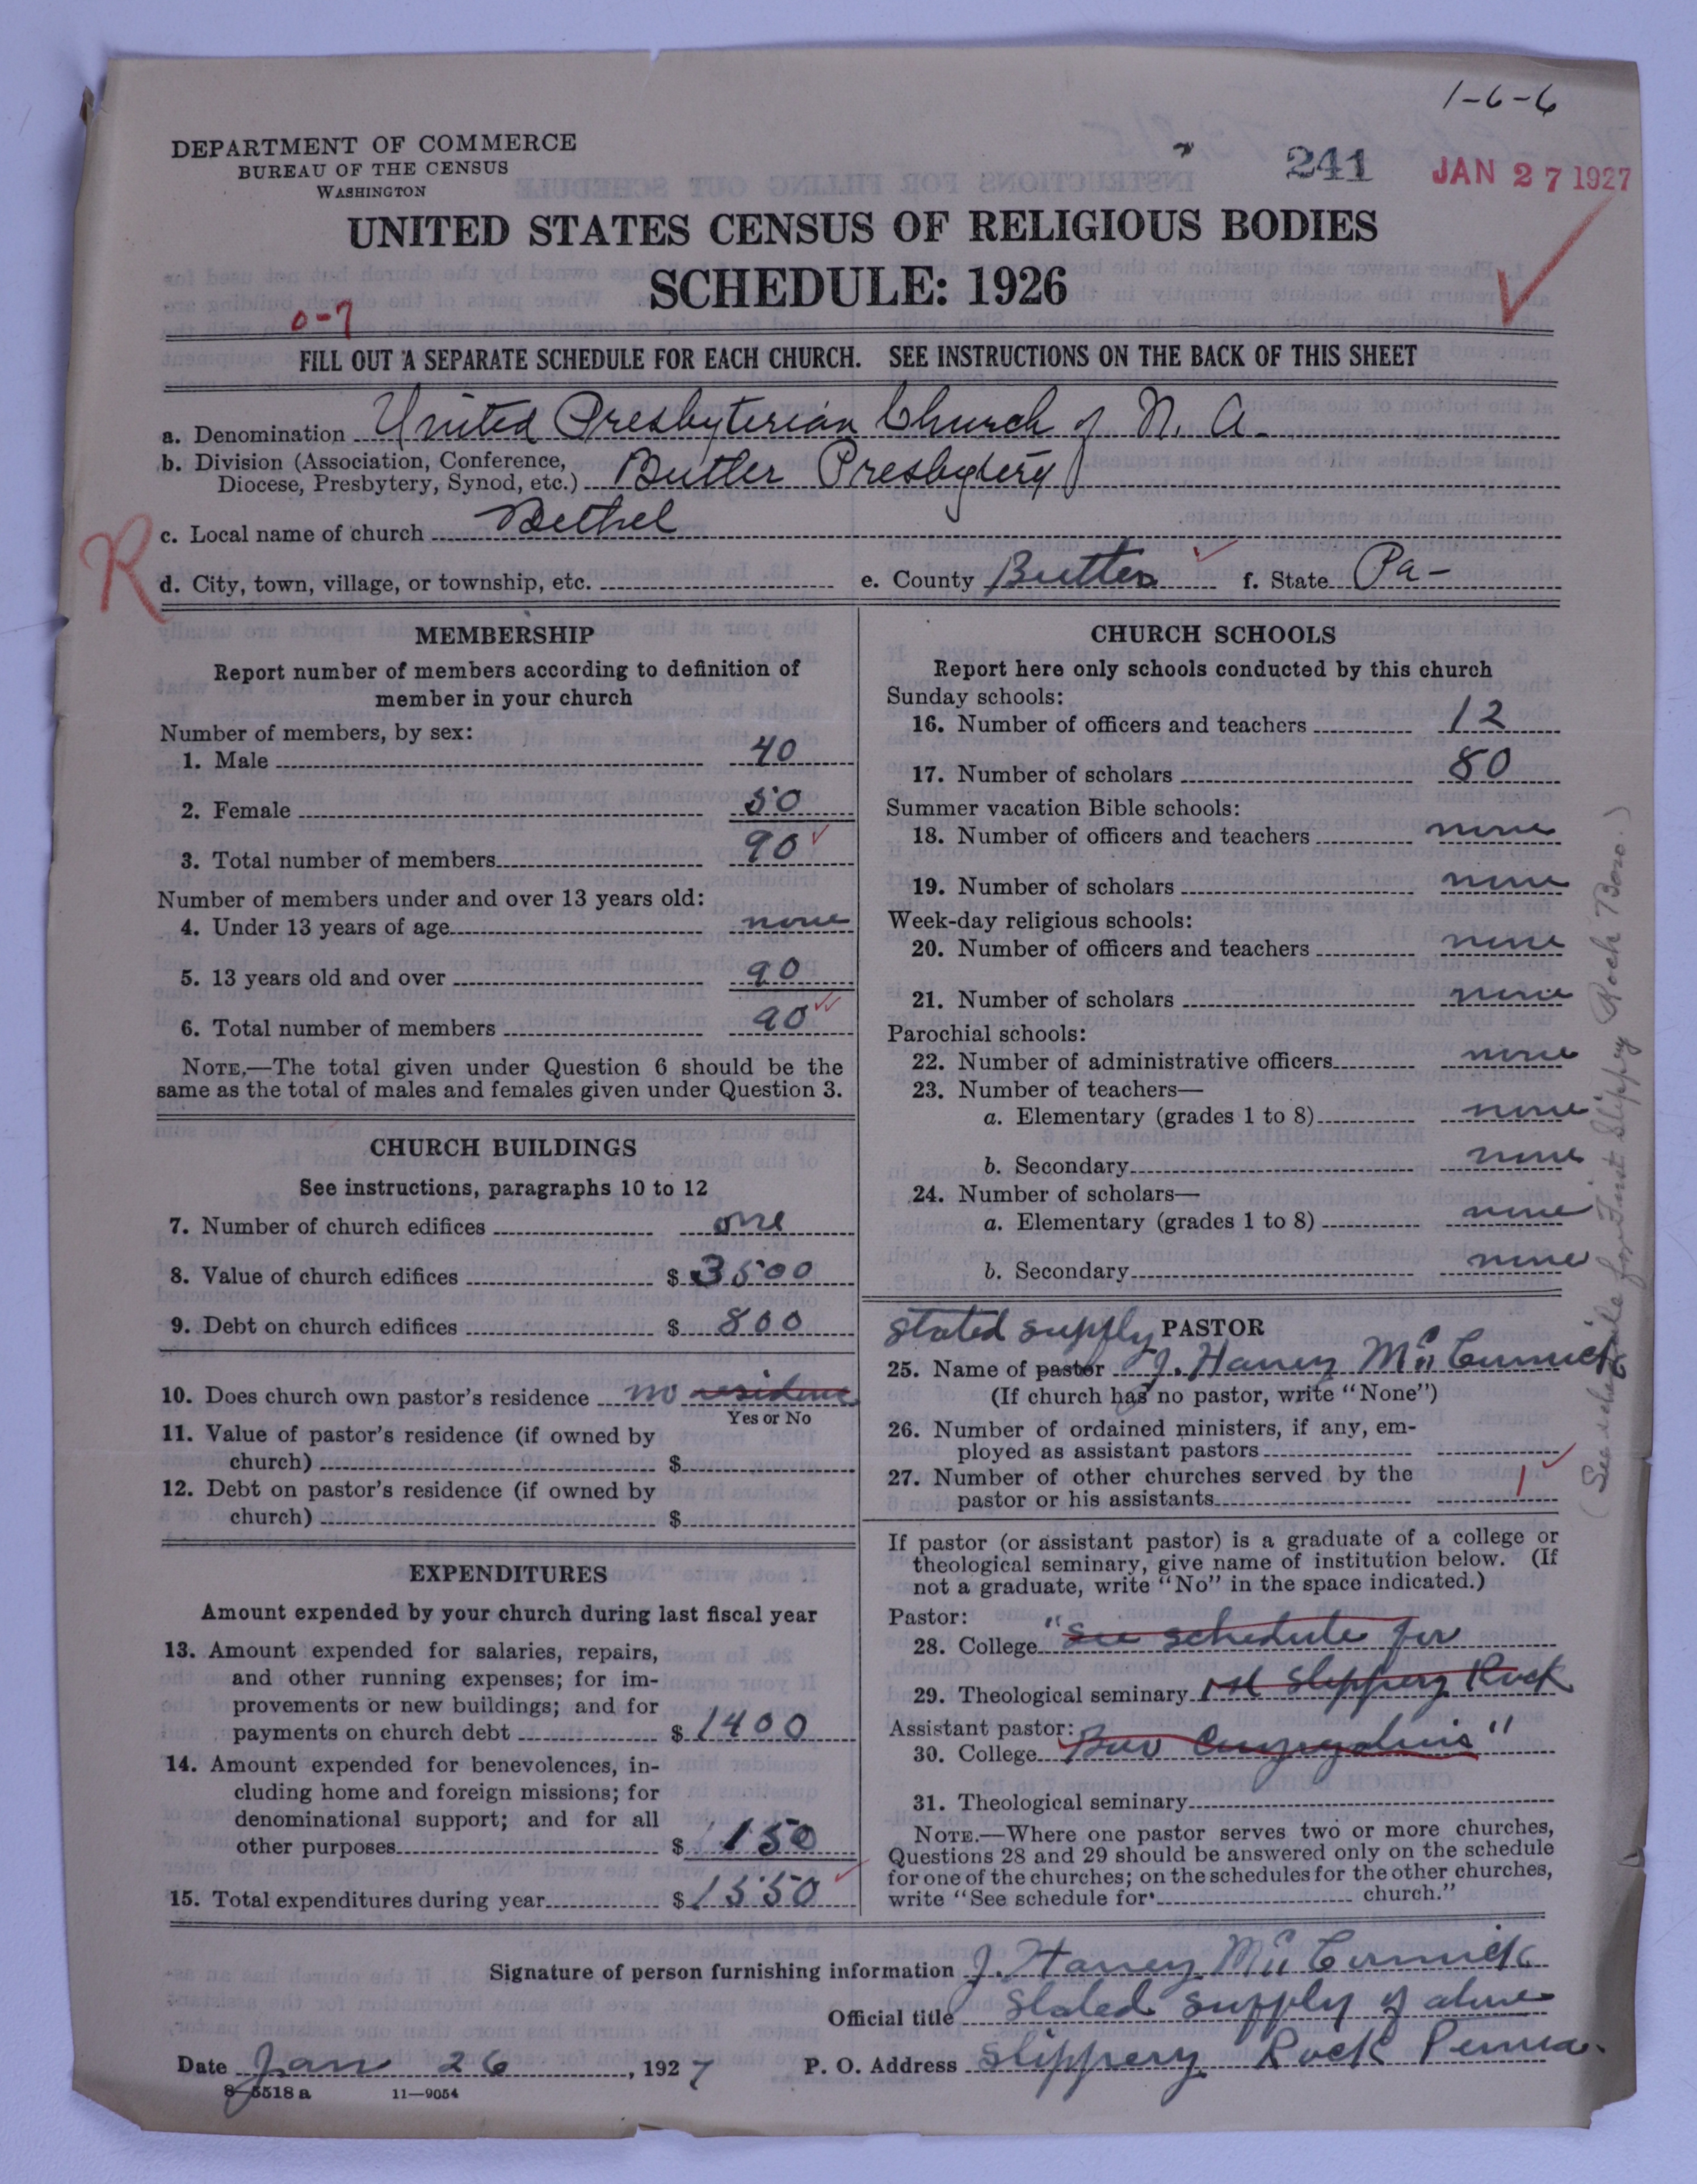 1-6-6
DEPARTMENT OF COMMERCE
BUREAU OF THE CENSUS
WASHINGTON
241
JAN 27 1927
UNITED STATES CENSUS OF RELIGIOUS BODIES
SCHEDULE: 1926
0-7
FILL OUT A SEPARATE SCHEDULE FOR EACH CHURCH. SEE INSTRUCTIONS ON THE BACK OF THIS SHEET
a. Denomination United Presbyterian Church of N. A.
b. Division (Association, Conference,
Diocese, Presbytery, Synod, etc.) Butler Presbytery
c. Local name of church Bethel
R
d. City, town, village, or township, etc. e. County Butler f. State Pa-
MEMBERSHIP
Report number of members according to definition of
member in your church
Number of members, by sex:
1. Male 40
2. Female 50
3. Total number of members 90
Number of members under and over 13 years old:
4. Under 13 years of age none
5. 13 years old and over 90
6. Total number of members 90
NOTE.—The total given under Question 6 should be the
same as the total of males and females given under Question 3.
CHURCH BUILDINGS
See instructions, paragraphs 10 to 12
7. Number of church edifices one
8. Value of church edifices $3500
9. Debt on church edifices $800
10. Does church own pastor's residence no residence
Yes or No
11. Value of pastor's residence (if owned by
church) $
12. Debt on pastor's residence (if owned by
church) $
EXPENDITURES
Amount expended by your church during last fiscal year
13. Amount expended for salaries, repairs,
and other running expenses; for im-
provements or new buildings; and for
payments on church debt $1400
14. Amount expended for benevolences, in-
cluding home and foreign missions; for
denominational support; and for all
other purposes $150
15. Total expenditures during year $1550
CHURCH SCHOOLS
Report here only schools conducted by this church
Sunday schools:
16. Number of officers and teachers 12
17. Number of scholars 80
Summer vacation Bible schools:
18. Number of officers and teachers none
19. Number of scholars none
Week-day religious schools:
20. Number of officers and teachers none
21. Number of scholars none
Parochial schools:
22. Number of administrative officers none
23. Number of teachers—
a. Elementary (grades 1 to 8) none
b. Secondary none
24. Number of scholars—
a. Elementary (grades 1 to 8) none
b. Secondary none
stated supply PASTOR
25. Name of pastor J. Harvey McCormick
(If church has no pastor, write "None")
26. Number of ordained ministers, if any, em-
ployed as assistant pastors
27. Number of other churches served by the
pastor or his assistants 1
If pastor (or assistant pastor) is a graduate of a college or
theological seminary, give name of institution below. (If
not a graduate, write "No" in the space indicated.)
Pastor:
28. College "See schedule for
29. Theological seminary 1st Slippery Rock
Assistant pastor:
30. College Boro "
31. Theological seminary
NOTE.—Where one pastor serves two or more churches,
Questions 28 and 29 should be answered only on the schedule
for one of the churches; on the schedules for the other churches,
write "See schedule for church."
(See schedule for First Slippery Rock Boro.)
Signature of person furnishing information J. Harvey McCormick
Official title Stated supply of above
Date Jan 26, 1927 P. O. Address Slippery Rock Penna.
8-5518 a 11—9054